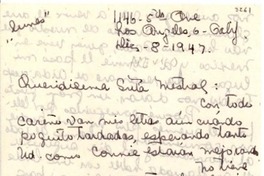 3261
"lunes"
1146-5th Ave
Los Angeles, 6-Calif.
Dic-8-1947.
Queridísima Srta Mistral:
Con todo
cariño van mis letras aún cuando
poquito tardadas, esperando tanto
Ud. como Connie estarán mejorando
no tiene